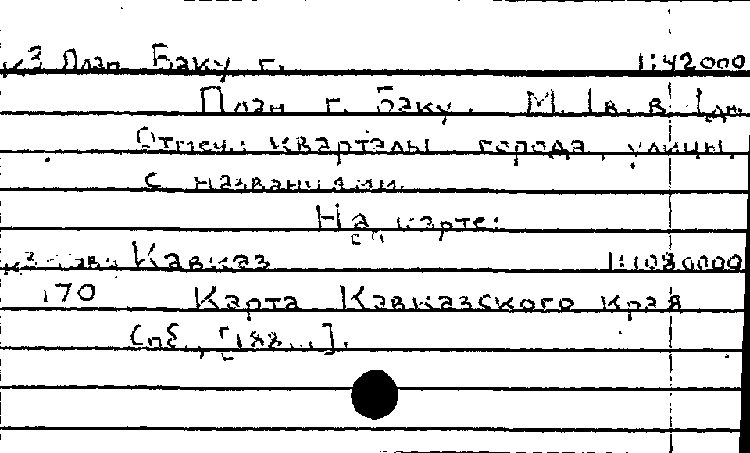 к3 План Баку г. 1:42000
План г. Баку. М. 1в. в 1дм.
Отмеч.: кварталы города, улицы
с названиями.
На карте:
к3 Кавказ 1:1080000
170 Карта Кавказского края
Спб., [188...].